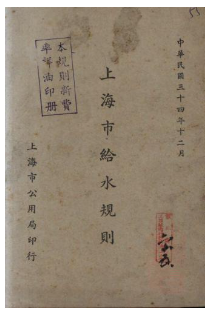 中華民國三十四年十二月
上海市給水規則
本規則新費
率詳油印册
上海市公用局印行